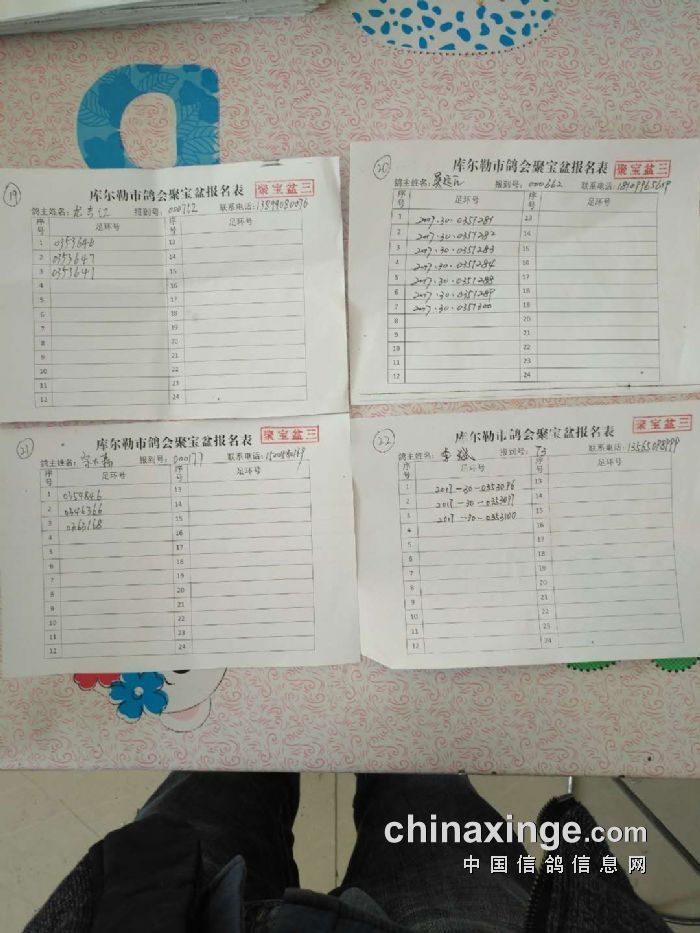 19
库尔勒市鸽会聚宝盆报名表
聚宝盆三
鸽主姓名: 报到号: 000752 联系电话: 13899080096
序号 足环号 序号 足环号
1 0353646 13
2 0353647 14
3 0353641 15
4 16
5 17
6 18
7 19
8 20
9 21
10 22
11 23
12 24
20
库尔勒市鸽会聚宝盆报名表
聚宝盆三
鸽主姓名: 报到号: 000662 联系电话:
序号 足环号 序号 足环号
1 2017.30.0357281 13
2 2017.30.0357282 14
3 2017.30.0357283 15
4 2017.30.0357284 16
5 2017.30.0357288 17
6 2017.30.0357289 18
7 2017.30.0357300 19
8 20
9 21
10 22
11 23
12 24
21
库尔勒市鸽会聚宝盆报名表
聚宝盆三
鸽主姓名: 报到号: 000177 联系电话:
序号 足环号 序号 足环号
1 0354846 13
2 0346366 14
3 0363168 15
4 16
5 17
6 18
7 19
8 20
9 21
10 22
11 23
12 24
22
库尔勒市鸽会聚宝盆报名表
聚宝盆三
鸽主姓名: 李斌 报到号: 73 联系电话: 13565098999
序号 足环号 序号 足环号
1 2017-30-0353096 13
2 2017-30-0353097 14
3 2017-30-0353100 15
4 16
5 17
6 18
7 19
8 20
9 21
10 22
11 23
12 24
chinaxinge.com
中国信鸽信息网